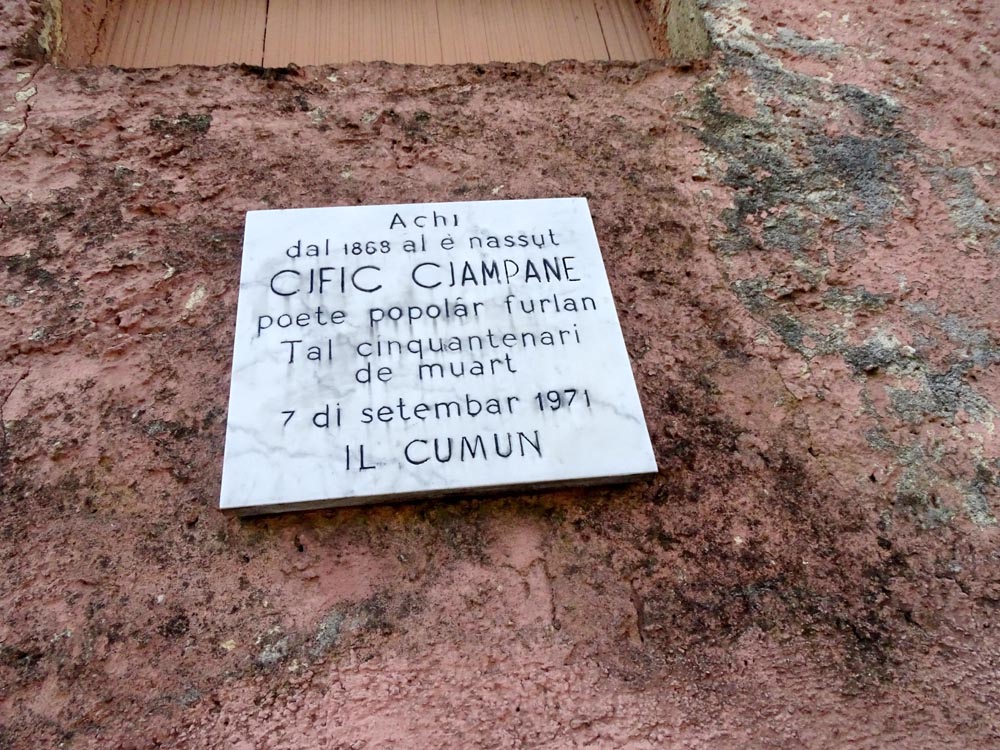 Achi
dal 1868 al è nassut
CIFIC CJAMPANE
poete popolâr furlan
Tal cinquantenari
de muart
7 di setembar 1971
IL CUMUN